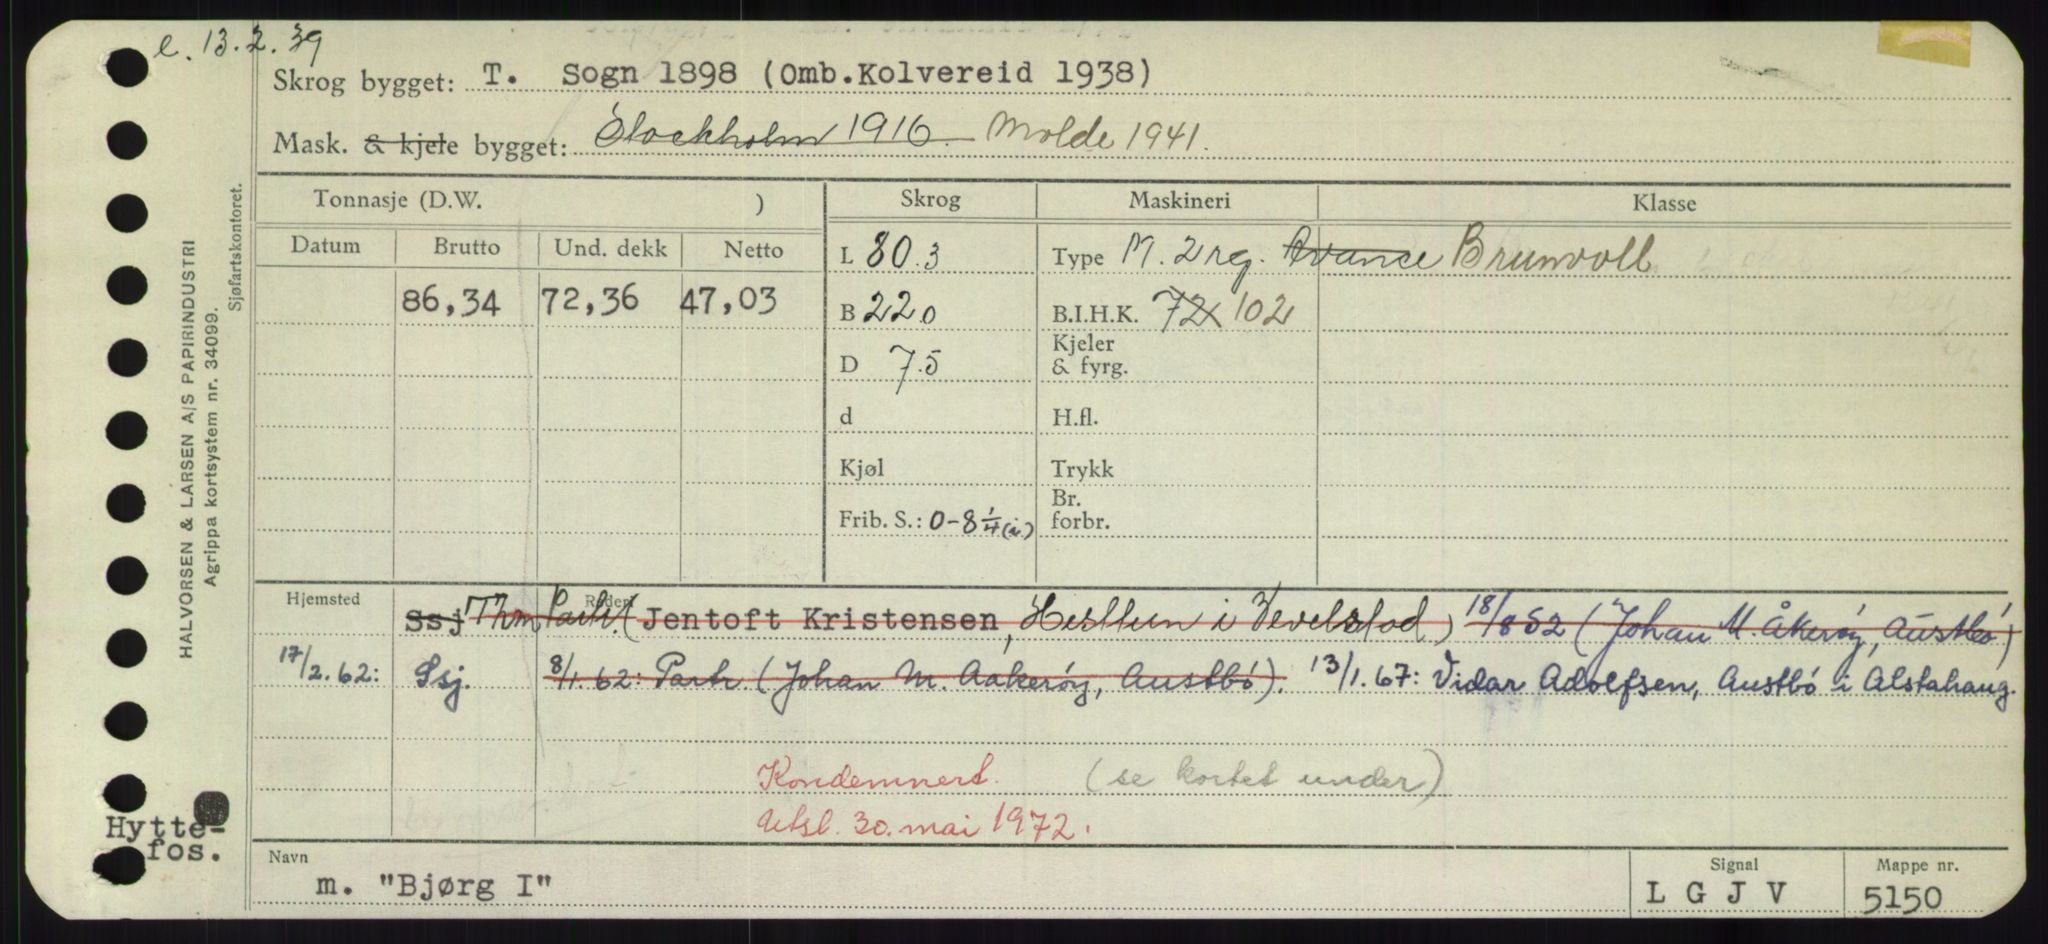 e. 13.2.39
Skrog bygget: T. Sogn 1898 (Omb.Kolvereid 1938)
Mask. & kjele bygget: Stockholm 1916. Molde 1941.
Tonnasje (D.W. ) Skrog Maskineri Klasse
Datum Brutto Und. dekk Netto
L 80.3 Type M. 2 rg. Avance Brunvoll
86,34 72,36 47,03
B 22.0 B.I.H.K. 72 102
D 7.5 Kjeler & fyrg.
d H.fl.
Kjøl Trykk
Frib. S.: 0-8 1/4 (i.) Br. forbr.
Hjemsted Reder
Ssj Thm Partr. (Jentoft Kristensen, Hestun i Vevelstad) 18/8 52 (Johan M. Åkerøy, Austbø)
17/2.62: Ssj. 8/1.62: Partr. (Johan M. Aakerøy, Austbø). 13/1.67: Vidar Adolfsen, Austbø i Alstahaug.
Kondemnert. (se kortet under)
Utsl. 30. mai 1972.
Hytte-
fos.
Navn Signal Mappe nr.
m. "Bjørg I" L G J V 5150
HALVORSEN & LARSEN A/S PAPIRINDUSTRI
Agrippa kortsystem nr. 34099.
Sjøfartskontoret.